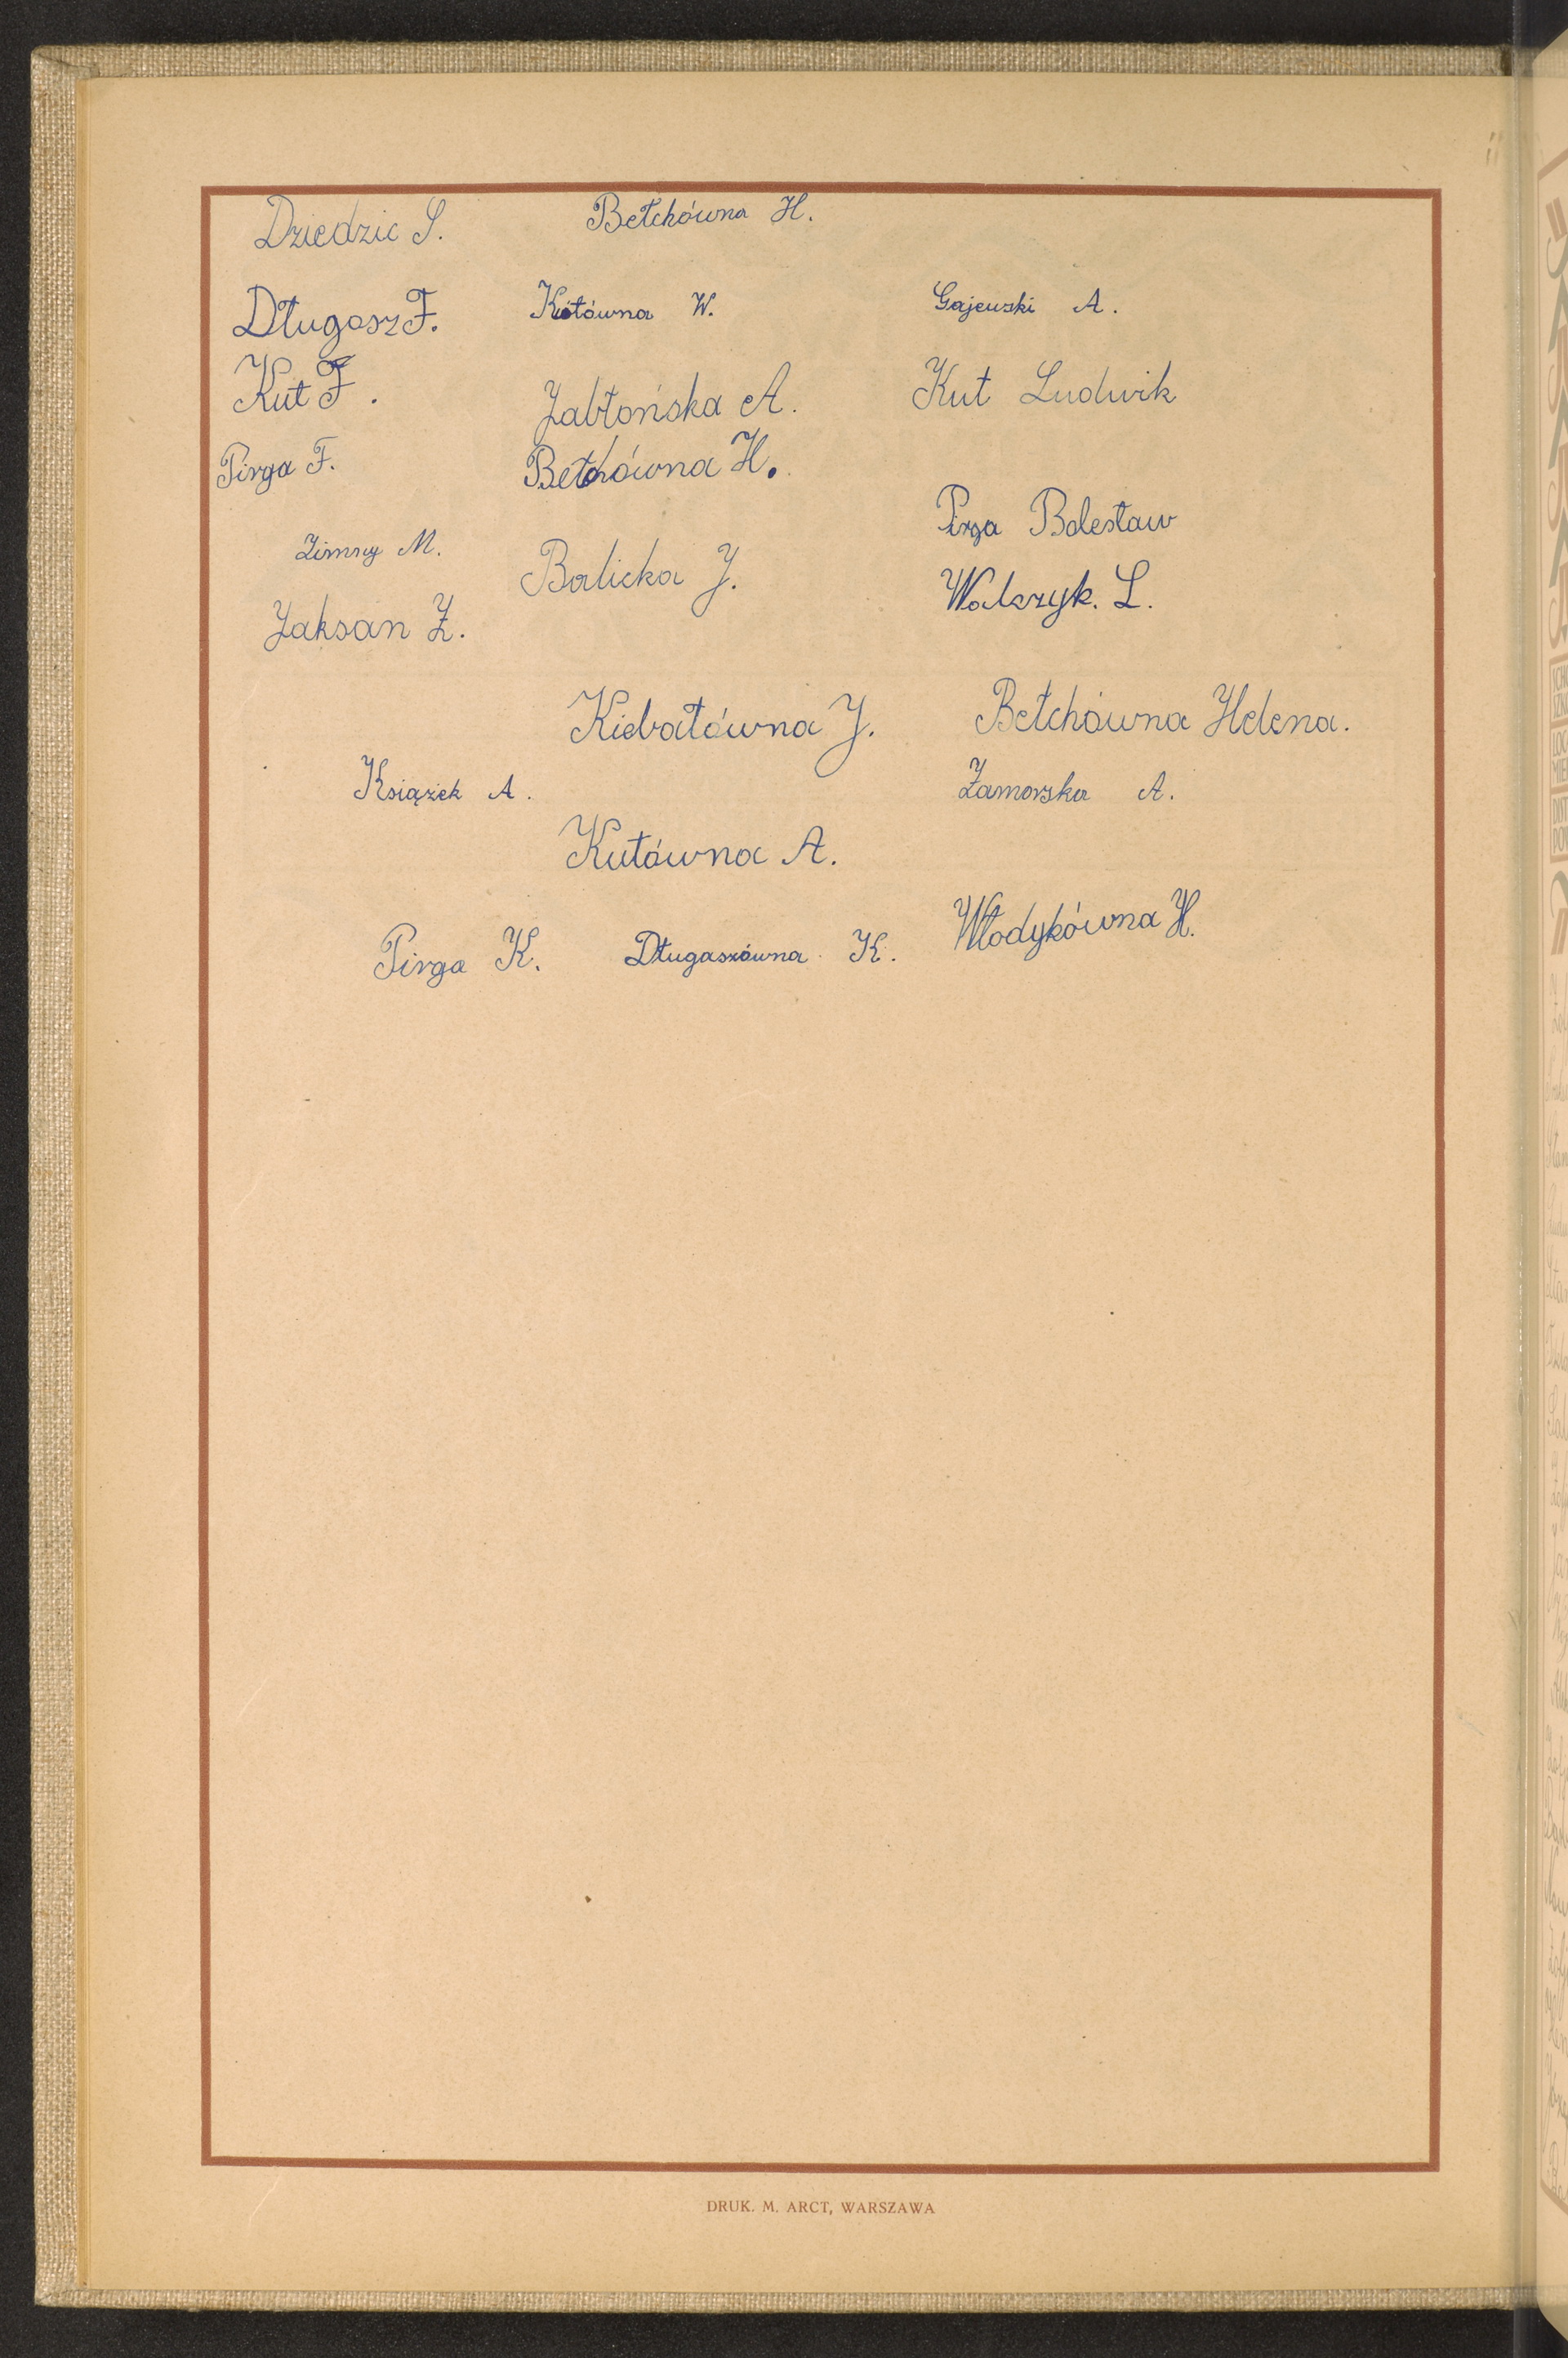 Dziedzic S. Bełchówna H.
Długosz F. Kótówna W. Gajewski A.
Kut F. Jabłońska A. Kut Ludwik
Pirga F. Bełchówna H.
Pirga Bolesław
Zimny M. Balicka J. Walczyk. L.
Jaksan Z.
Kiebałówna J. Bełchówna Helena.
Książek A. Zamorska A.
Kutówna A.
Pirga K. Długaszówna K. Włodykówna H.
DRUK. M. ARCT, WARSZAWA